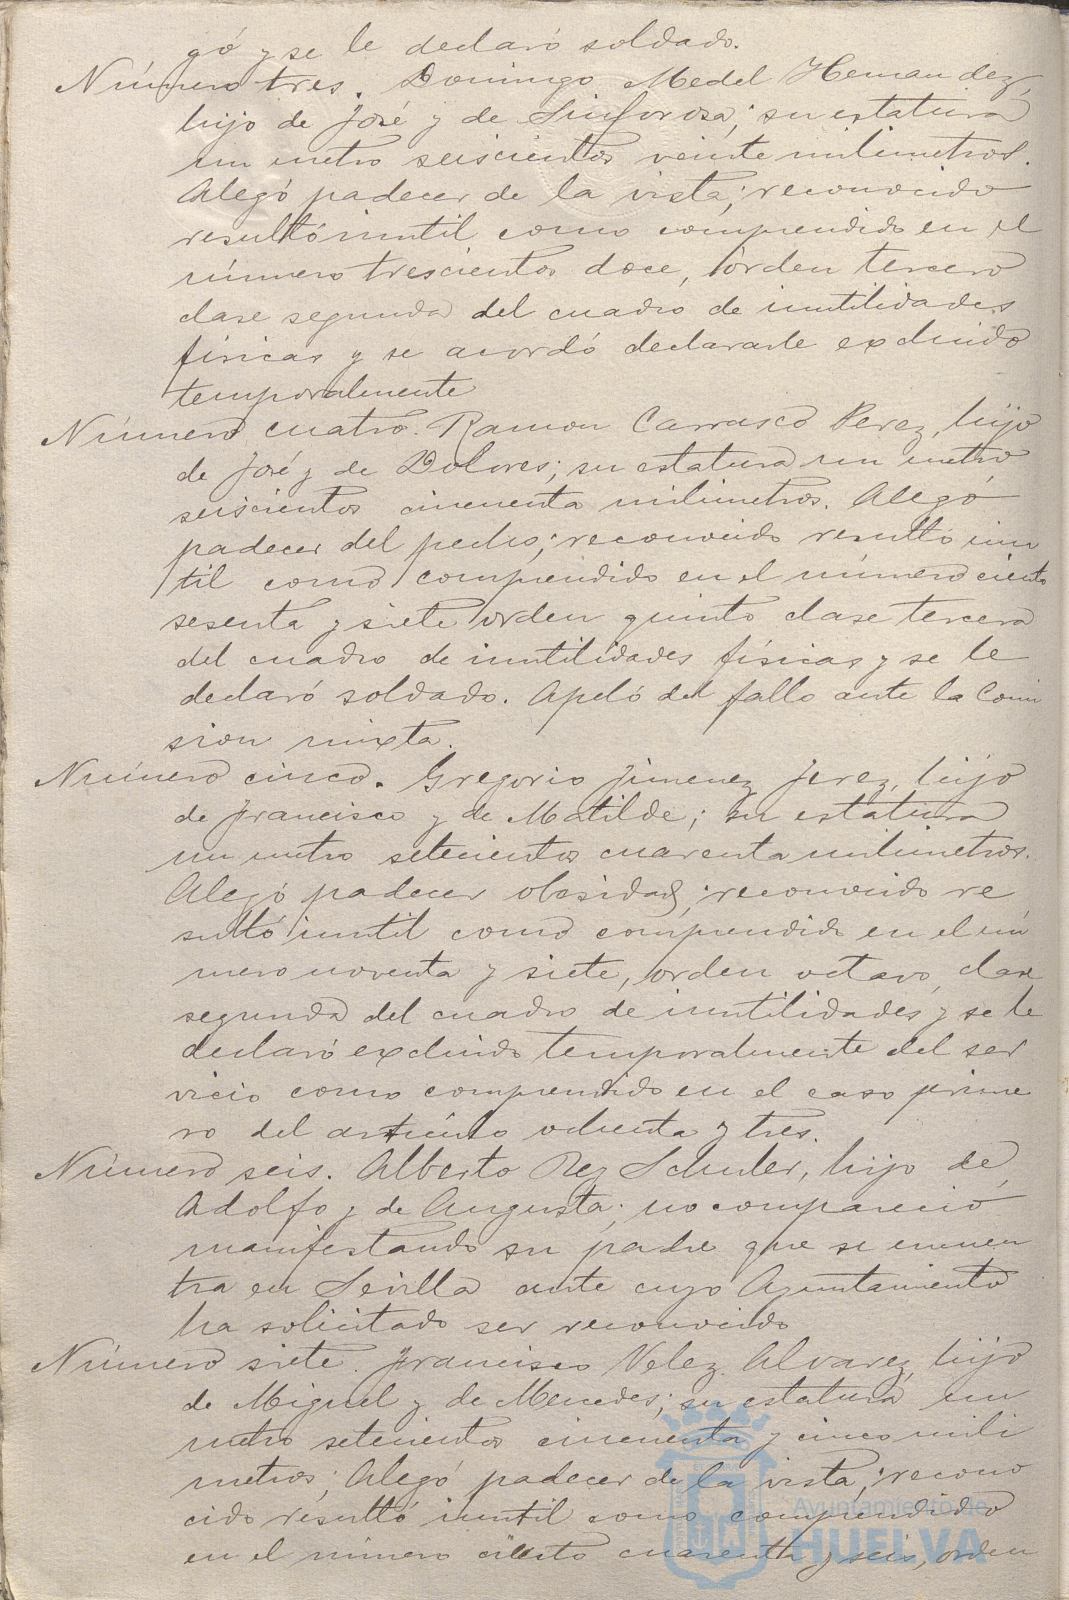 gó y se le declaró soldado.
Número tres. Domingo Medel Hernandez,
hijo de José y de Sinforosa; su estatura
un metro seiscientos veinte milimetros.
Alegó padecer de la vista; reconocido
resultó inutil como comprendido en el
número trescientos doce, órden tercero
clase segunda del cuadro de inutilidades
físicas y se acordó declararle excluido
temporalmente
Número cuatro. Ramon Carrasco Perez, hijo
de José y de Dolores; su estatura un metro
seiscientos cincuenta milimetros. Alegó
padecer del pecho; reconocido resultó inu
til como comprendido en el número ciento
sesenta y siete orden quinto clase tercera
del cuadro de inutilidades físicas y se le
declaró soldado. Apeló del fallo ante la Comi
sion mixta.
Número cinco. Gregorio Jimenez Jerez, hijo
de Francisco y de Matilde; su estatura
un metro setecientos cuarenta milimetros.
Alegó padecer obesidad; reconocido re
sultó inutil como comprendido en el nú
mero noventa y siete, orden octavo, clase
segunda del cuadro de inutilidades y se le
declaró excluido temporalmente del ser
vicio como comprendido en el caso prime
ro del artículo ochenta y tres.
Número seis. Alberto Rey Schuler, hijo de
Adolfo y de Augusta; no compareció
manifestando su padre que se encuen
tra en Sevilla ante cuyo Ayuntamiento
ha solicitado ser reconocido
Número siete. Francisco Velez Alvarez, hijo
de Miguel y de Mercedes; su estatura un
metro setecientos cincuenta y cinco mili
metros; Alegó padecer de la vista; recono
cido resultó inutil como comprendido
en el número ciento cuarenta y seis, orden
Ayuntamiento de
HUELVA